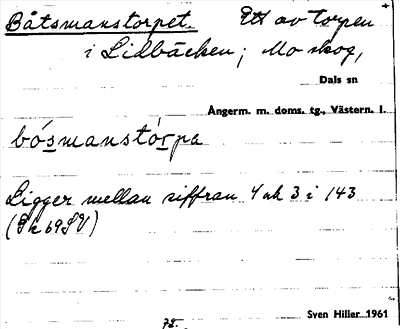 Båtsmanstorpet. Ett av torpen
i Lidbäcken; Mo skog,
Dals sn
Ångerm. m. doms. tg., Västern. l.
bósmanstórpa
Ligger mellan siffran 4 och 3 i 143
(Gk 69SV)
Sven Hiller 1961
72.